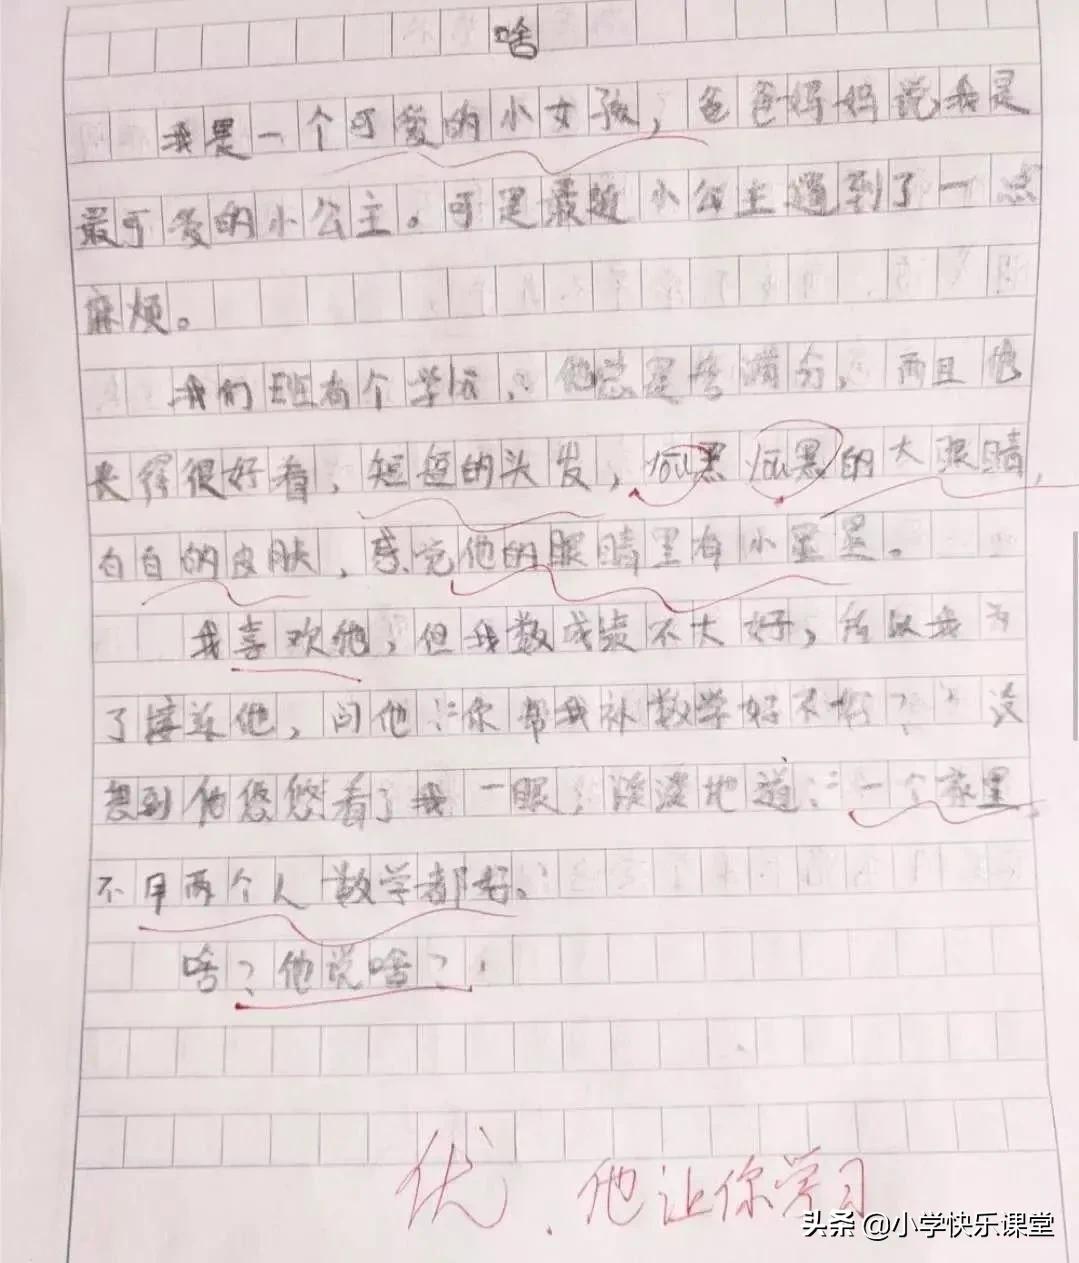 啥
我是一个可爱的小女孩，爸爸妈妈说我是
最可爱的小公主。可是最近小公主遇到了一点
麻烦。
我们班有个学伝，他总是考满分，而且他
长得很好看，短短的头发，you黑you黑的大眼睛，
白白的皮肤，感觉他的眼睛里有小星星。
我喜欢他，但我数成绩不大好，所以我为
了接近他，问他：“你帮我补数学好不好？”没
想到他悠悠看了我一眼，淡淡地道：“一个家里
不用两个人数学都好。
啥？他说啥？
优．他让你学习
头条 @小学快乐课堂